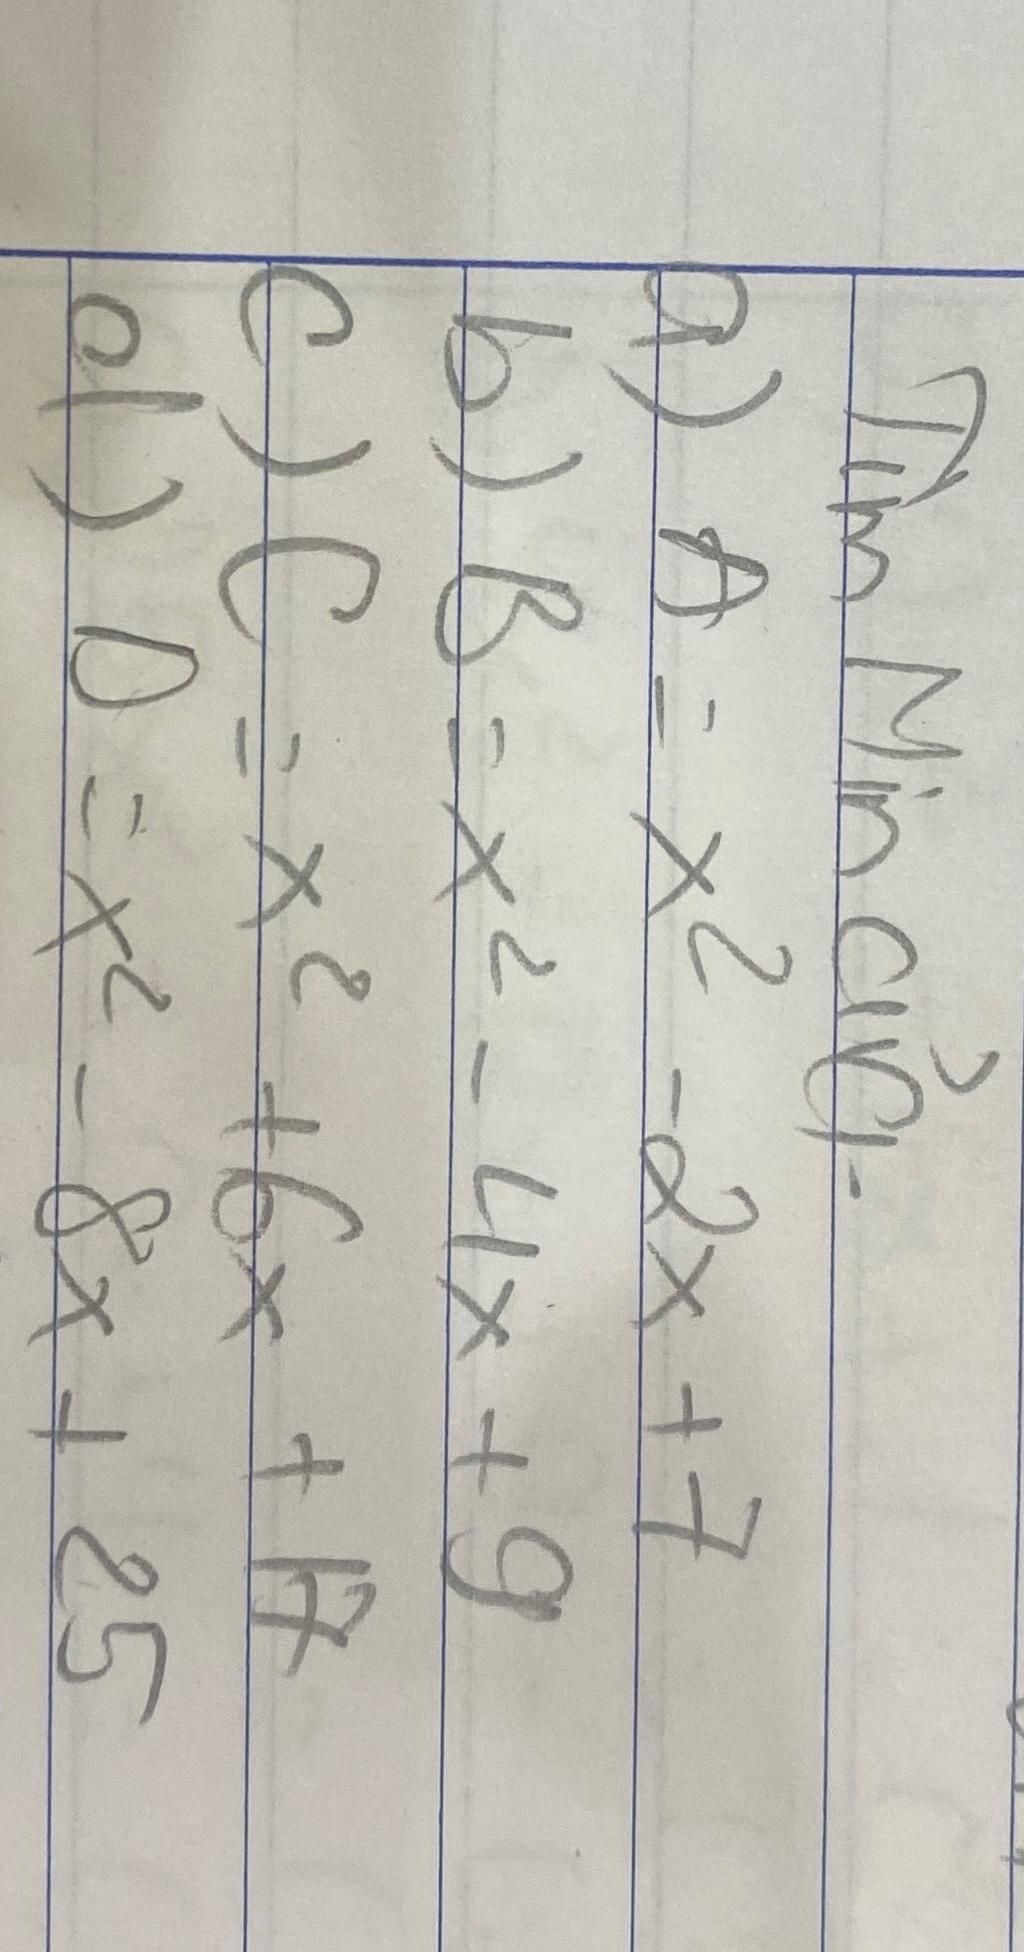 Tìm Min của.
a) A = x² - 2x + 7
b) B = x² - 4x + 9
c) C = x² + 6x + 17
d) D = x² - 8x + 25